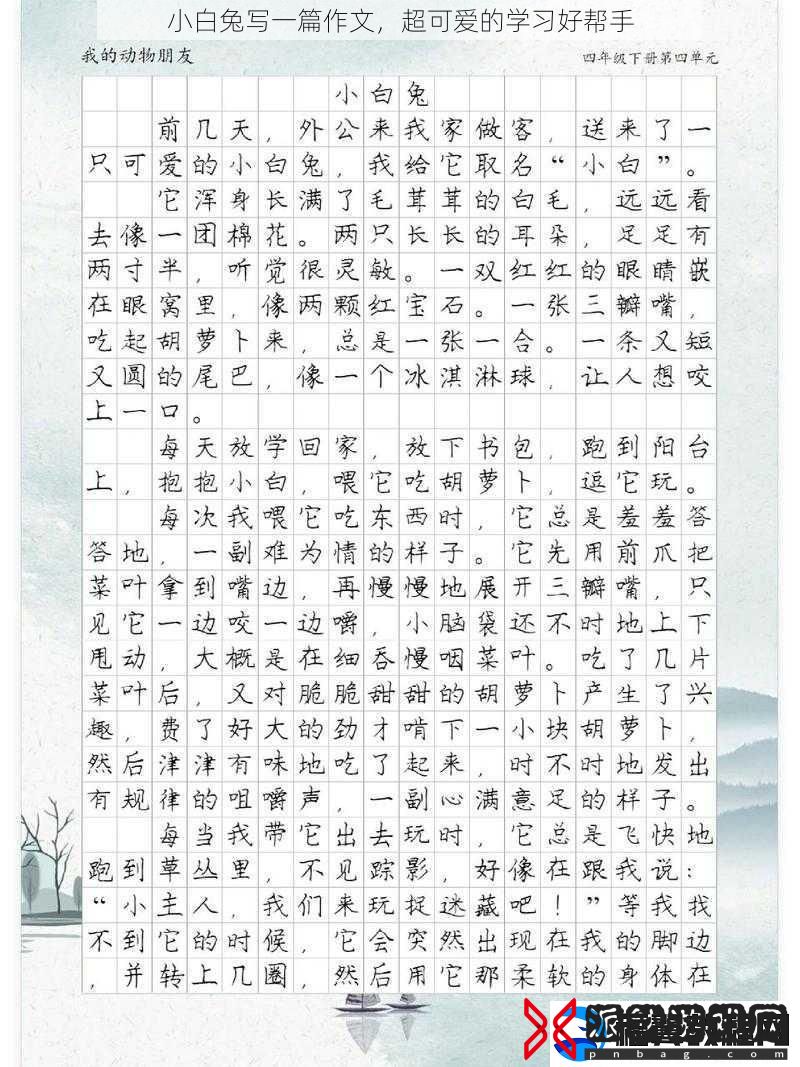 小白兔写一篇作文，超可爱的学习好帮手
我的动物朋友
四年级下册第四单元
小白兔
前几天，外公来我家做客，送来了一
只可爱的小白兔，我给它取名“小白”。
它浑身长满了毛茸茸的白毛，远远看
去像一团棉花。两只长长的耳朵，足足有
两寸半，听觉很灵敏。一双红红的眼睛嵌
在眼窝里，像两颗红宝石。一张三瓣嘴，
吃起胡萝卜来，总是一张一合。一条又短
又圆的尾巴，像一个冰淇淋球，让人想咬
上一口。
每天放学回家，放下书包，跑到阳台
上，抱抱小白，喂它吃胡萝卜，逗它玩。
每次我喂它吃东西时，它总是羞羞答
答地，一副难为情的样子。它先用前爪把
菜叶拿到嘴边，再慢慢地展开三瓣嘴，只
见它一边咬一边嚼，小脑袋还不时地上下
甩动，大概是在细吞慢咽菜叶。吃了几片
菜叶后，又对脆脆甜甜的胡萝卜产生了兴
趣，费了好大的劲才啃下一小块胡萝卜，
然后津津有味地吃了起来，时不时地发出
有规律的咀嚼声，一副心满意足的样子。
每当我带它出去玩时，它总是飞快地
跑到草丛里，不见踪影，好像在跟我说：
“小主人，我们来玩捉迷藏吧！”等我找
不到它的时候，它会突然出现在我的脚边
，并转上几圈，然后用它那柔软的身体在
pnbag.com